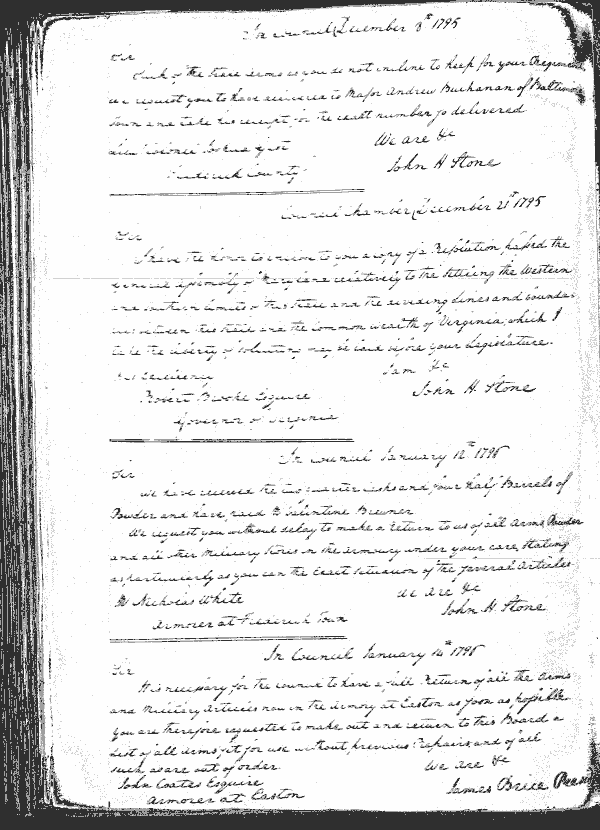 In Council December 8th 1795
Sir
Such of the State Arms as you do not incline to keep for your Regiment
we request you to have delivered to Major Andrew Buchanan of Baltimore
Town and take his receipt for the exact number so delivered
We are &c
Lieut Colonel Joshua
John H Stone
Frederick County
Council Chamber December 21st 1795
Sir
I have the honor to enclose to you a copy of a Resolution passed the
General Assembly of Maryland relatively to the settling the Western
and Southern limits of this State and the dividing Lines and bounda-
ries between this State and the common wealth of Virginia, which I
take the liberty of soliciting may be laid before your Legislature.
His Excellency
I am &c
Robert Brooke Esquire
John H. Stone
Governor of Virginia
In Council January 12th 1796
Sir
We have received the two quarter casks and four half Barrels of
Powder and have paid Mr Valentine Brunner
We request you without delay to make a return to us of all Arms, Powder
and all other Military Stores in the Armoury under your care, stating
as particularly as you can the Exact situation of the several Articles
Mr Nicholas White
We are &c
Armorer at Frederick Town
John H. Stone
In Council January 14th 1796
Sir
It is necessary for the Council to have a full Return of all the Arms
and Military Articles now in the Armory at Easton as soon as possible
you are therefore requested to make out and return to this Board a
List of all Arms fit for use without previous Repairs and of all
such as are out of order.
We are &c
John Coates Esquire
James Brice
Armorer at Easton